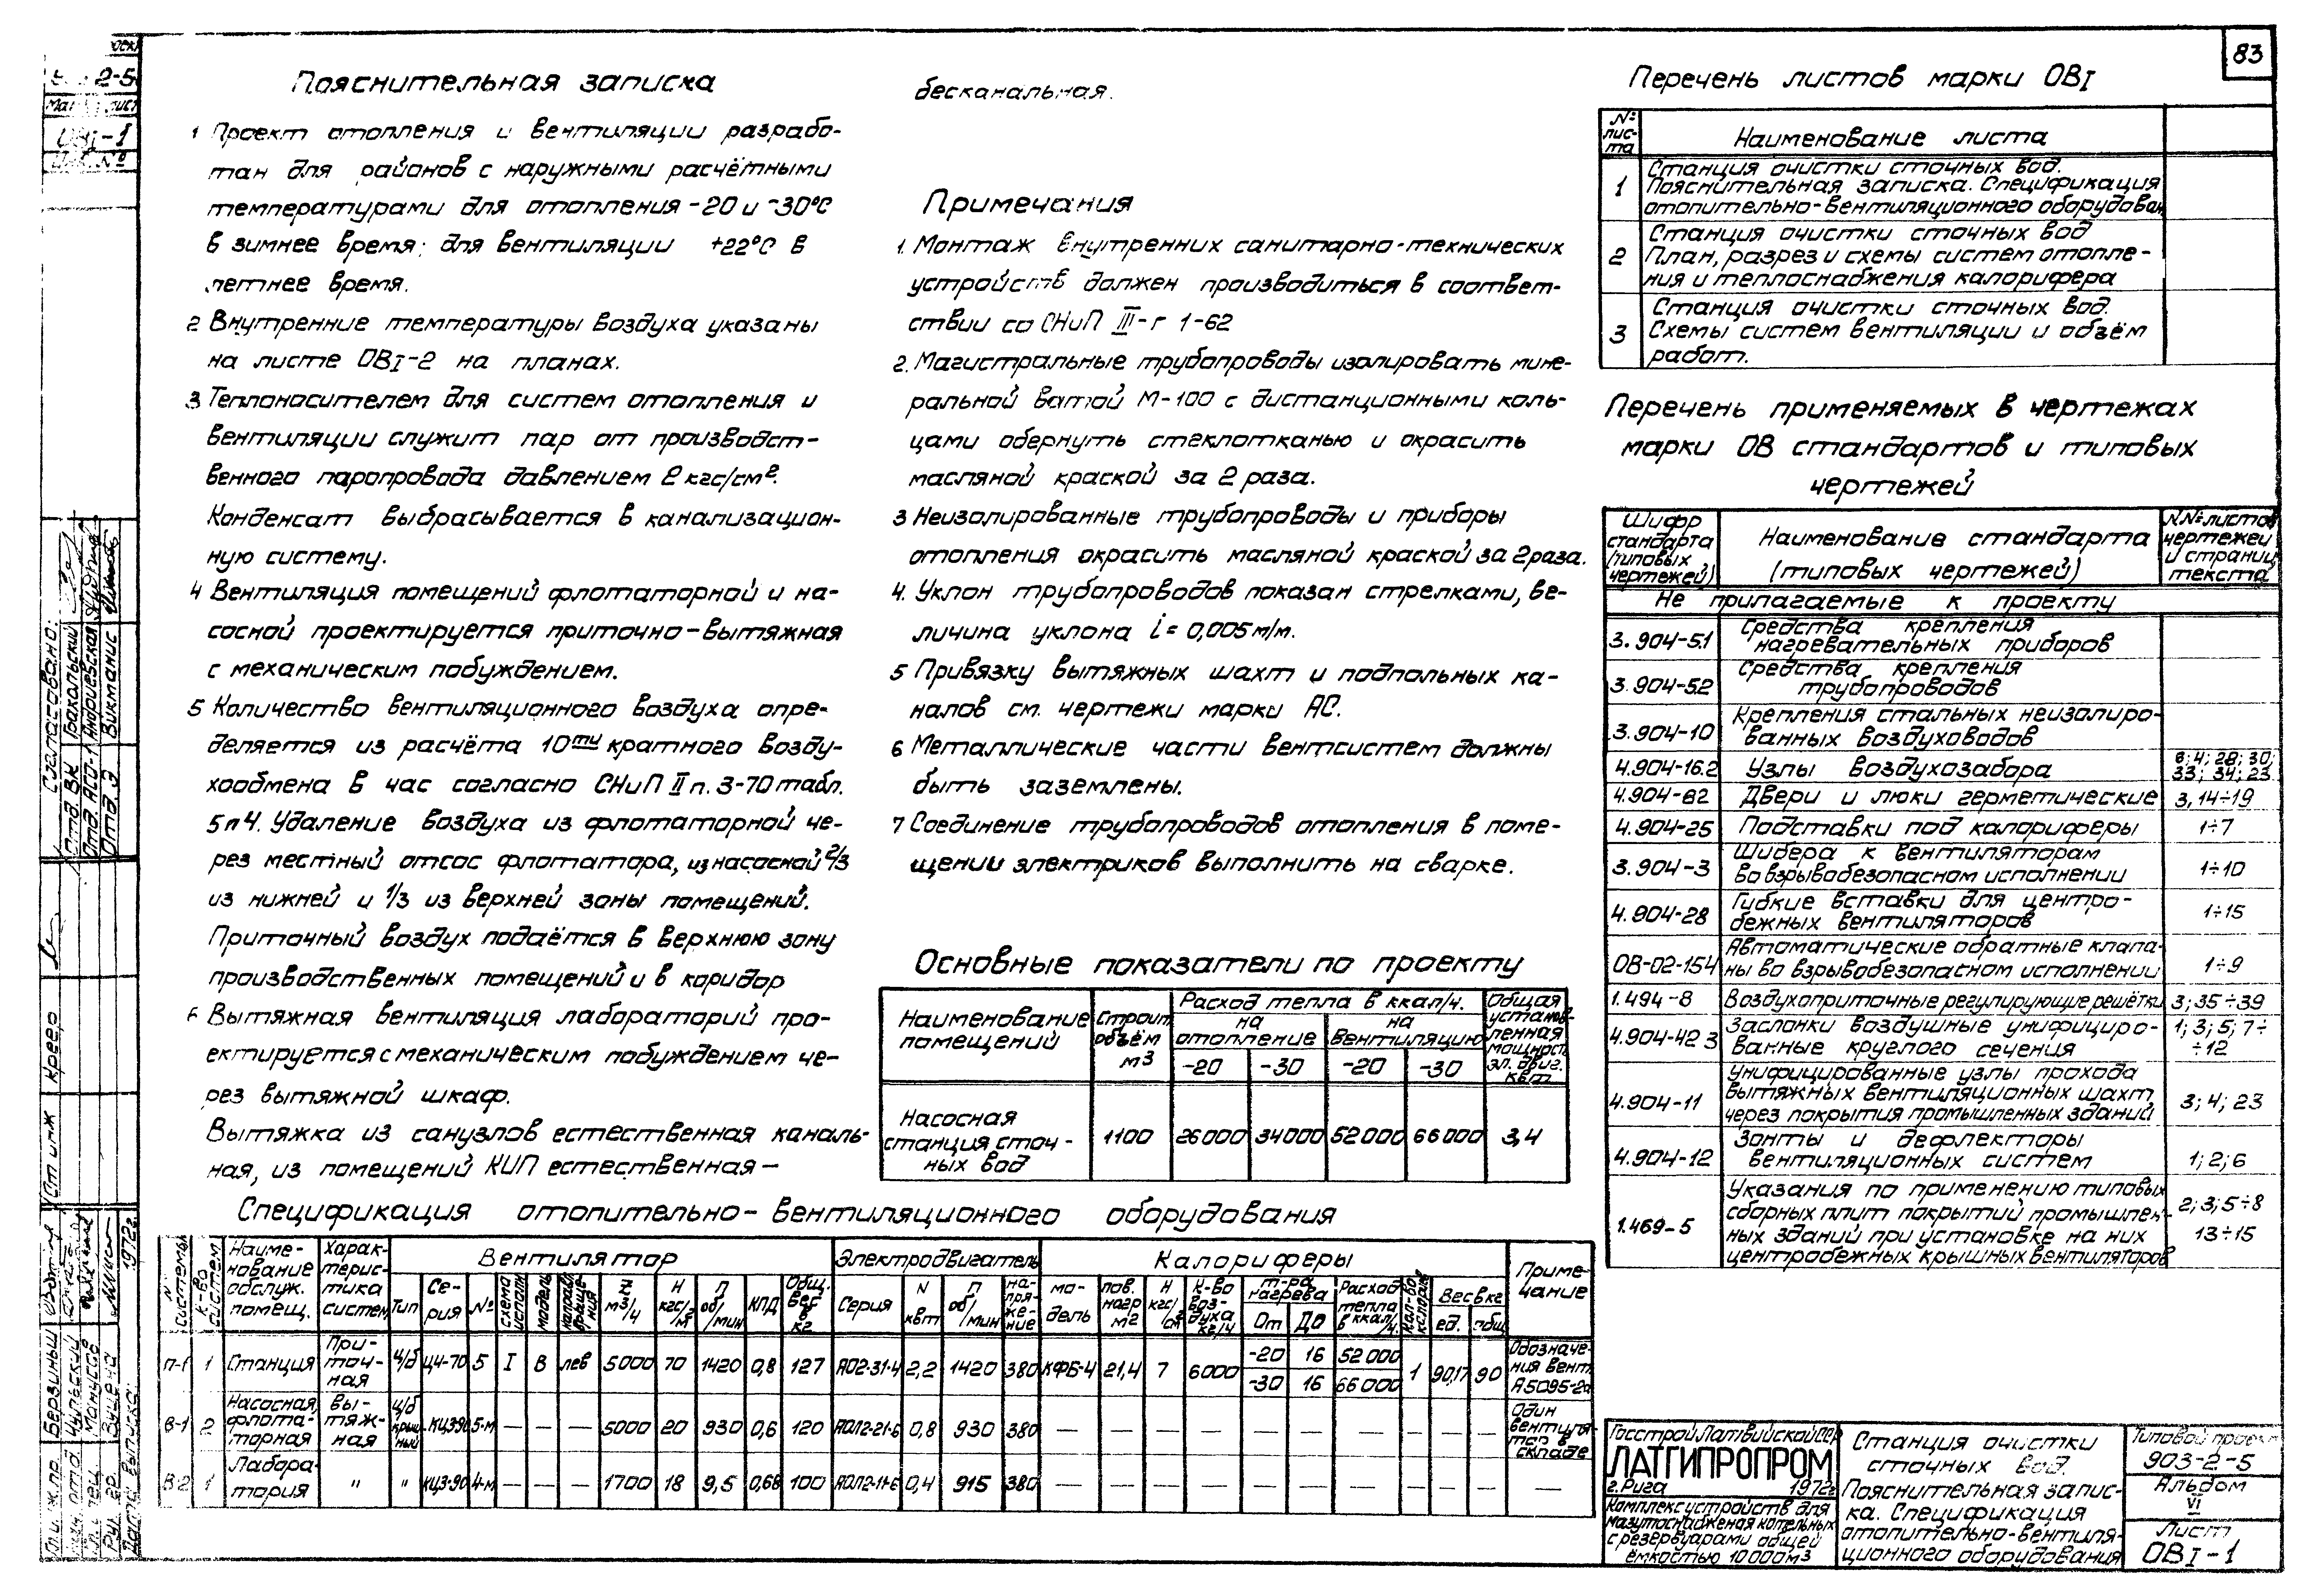 83
Пояснительная записка
1 Проект отопления и вентиляции разрабо-
тан для районов с наружными расчётными
температурами для отопления -20 и -30°С
в зимнее время; для вентиляции +22°С в
летнее время.
2 Внутренние температуры воздуха указаны
на листе ОВI-2 на планах.
3 Теплоносителем для систем отопления и
вентиляции служит пар от производст-
венного паропровода давлением 2 кгс/см².
Конденсат выбрасывается в канализацион-
ную систему.
4 Вентиляция помещений флотаторной и на-
сосной проектируется приточно-вытяжная
с механическим побуждением.
5 Количество вентиляционного воздуха опре-
деляется из расчёта 10ти кратного возду-
хообмена в час согласно СНиП II п. 3-70 табл.
5 п 4. Удаление воздуха из флотаторной че-
рез местный отсос флотатора, из насосной 2/3
из нижней и 1/3 из верхней зоны помещений.
Приточный воздух подаётся в верхнюю зону
производственных помещений и в коридор
6 Вытяжная вентиляция лабораторий про-
ектируется с механическим побуждением че-
рез вытяжной шкаф.
Вытяжка из санузлов естественная каналь-
ная, из помещений КИП естественная-
бесканальная.
Примечания
1. Монтаж внутренних санитарно-технических
устройств должен производиться в соответ-
ствии со СНиП III-г 1-62
2. Магистральные трубопроводы изолировать мине-
ральной ватой М-100 с дистанционными коль-
цами обернуть стеклотканью и окрасить
масляной краской за 2 раза.
3 Неизолированные трубопроводы и приборы
отопления окрасить масляной краской за 2 раза.
4. Уклон трубопроводов показан стрелками, ве-
личина уклона i = 0,005 м/м.
5 Привязку вытяжных шахт и подпольных ка-
налов см. чертежи марки АС.
6 Металлические части вентсистем должны
быть заземлены.
7 Соединение трубопроводов отопления в поме-
щении электриков выполнить на сварке.
Основные показатели по проекту
Наименование помещений Строит. объём м3 Расход тепла в ккал/ч. Общая установ-ленная мощность эл. двиг. квт
на отопление на вентиляцию
-20 -30 -20 -30
Насосная
станция сточ- 1100 26000 34000 52000 66000 3,4
ных вод
Перечень листов марки ОВI
№ лис-та Наименование листа
1 Станция очистки сточных вод.
Пояснительная записка. Спецификация
отопительно-вентиляционного оборудован.
2 Станция очистки сточных вод
План, разрез и схемы систем отопле-
ния и теплоснабжения калорифера
3 Станция очистки сточных вод.
Схемы систем вентиляции и объём
работ.
Перечень применяемых в чертежах
марки ОВ стандартов и типовых
чертежей
Шифр стандарта (типовых чертежей) Наименование стандарта (типовых чертежей) N.№ листов чертежей и страниц текста
Не прилагаемые к проекту
3.904-51 Средства крепления
нагревательных приборов
3.904-52 Средства крепления
трубопроводов
3.904-10 Крепления стальных неизолиро-
ванных воздуховодов
4.904-16.2 Узлы воздухозабора 6; 4; 28; 30; 33; 34; 23
4.904-62 Двери и люки герметические 3, 14÷19
4.904-25 Подставки под калориферы 1÷7
3.904-3 Шибера к вентиляторам
во взрывобезопасном исполнении 1÷10
4.904-28 Гибкие вставки для центро-
бежных вентиляторов 1÷15
ОВ-02-154 Автоматические обратные клапа-
ны во взрывобезопасном исполнении 1÷9
1.494-8 Воздухоприточные регулирующие решётки 3; 35÷39
4.904-42 3 Заслонки воздушные унифициро-
ванные круглого сечения 1; 3; 5; 7÷ ÷12
4.904-11 Унифицированные узлы прохода
вытяжных вентиляционных шахт
через покрытия промышленных зданий 3; 4; 23
4.904-12 Зонты и дефлекторы
вентиляционных систем 1; 2; 6
1.469-5 Указания по применению типовых
сборных плит покрытий промышлен-
ных зданий при установке на них
центробежных крышных вентиляторов 2; 3; 5÷8 13÷15
Спецификация отопительно-вентиляционного оборудования
N системы К-во систем Наиме-нование обслуж. помещ. Харак-терис-тика систем Вентилятор Электродвигатель Калориферы Приме-чание
Тип Се-рия № Схема исполн. модель направл. враще-ния L м3/ч Н кгс/м² п об/мин КПД Общ. вес в кг Серия N квт п об/мин на-пря-же-ние мо-дель пов. нагр м2 Н кгс/см К-во воз-духа кг/ч т-ра нагрева От До Расход тепла в ккал/ч. Кол-во калориф. Вес в кг ед. общ
П-1 1 Станция При-точ-ная ц/б Ц4-70 5 I В лев 5000 70 1420 0,8 127 АО2-31-4 2,2 1420 380 КФБ-4 21,4 7 6000 -20 16 52000 1 90,17 90 Обозначе-ния вент. А5095-2а
-30 16 66000
В-1 2 Насосная, флота-торная Вы-тяж-ная ц/б крыш-ный КЦ3-90 5-м — — — 5000 20 930 0,6 120 АОЛ2-21-6 0,8 930 380 — — — — — — — — — — Один вентиля-тор в складе
В-2 1 Лабора-тория " " КЦ3-90 4-м — — — 1700 18 9,5 0,68 100 АОЛ2-11-6 0,4 915 380 — — — — — — — — — — —
Госстрой Латвийской ССР
ЛАТГИПРОПРОМ
г. Рига 1972г
Комплекс устройств для
мазутоснабжения котельных
с резервуарами общей
емкостью 10000м3
Станция очистки
сточных вод.
Пояснительная запис-
ка. Спецификация
отопительно-вентиля-
ционного оборудования
Типовой проект
903-2-5
Альбом
VI
Лист
ОВI-1
2-5
ОВI-1
Инв. №
Согласовано:
Отд. ВК Грахольский
Отд. АСО-1 Андриевская
Отд. Э Викманис
Ст инж Креер
Гл. инж. пр. Берзиньш
Нач. отд. Чульский
Гл. спец. Манусов
Рук. гр.
Дата выпуска: 1972г.